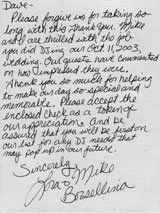 Dave-
Please forgive us for taking so
long with this Thank you. Mike
and I are thrilled with the job
you did DJing our Oct 11, 2003,
wedding. Our guests have commented
on how impressed they were.
Thank you so much for helping
to make our day so special and
memorable. Please accept the
enclosed check as a token of
our appreciation. And be
assured that you will be first on
our list for any DJ needs that
may pop up in our future.
Sincerely,
Mike